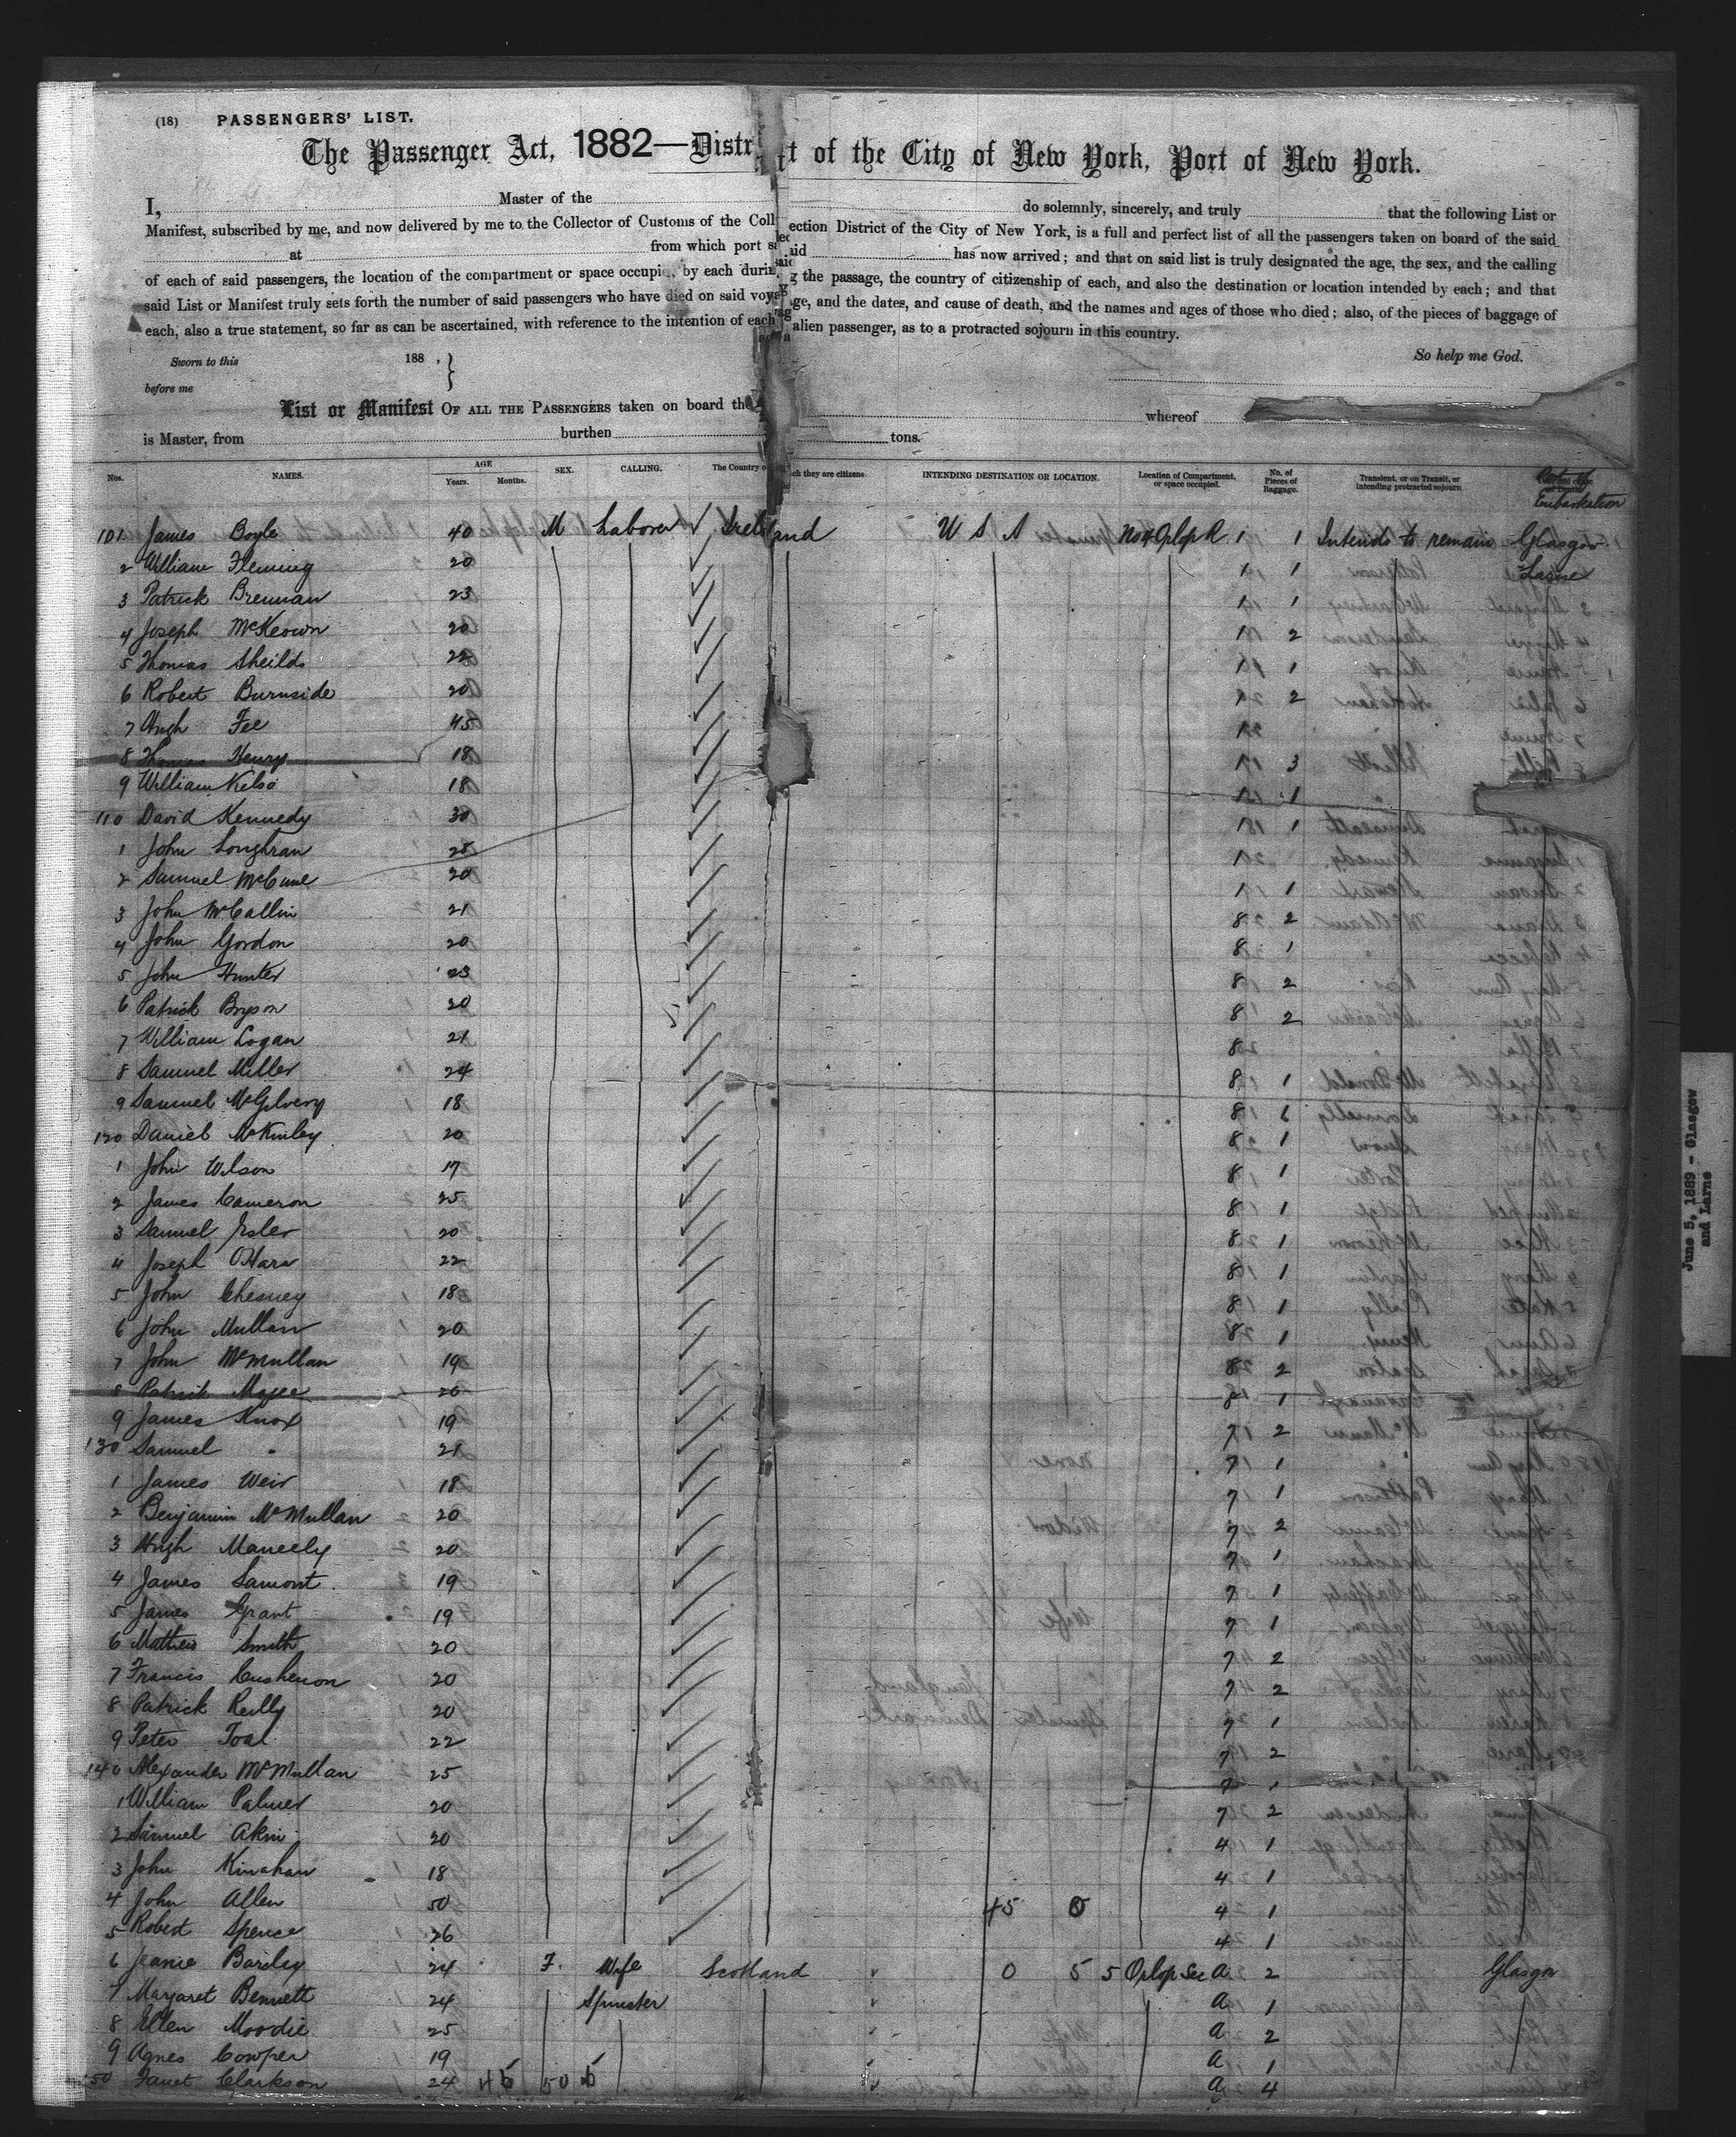 (18) PASSENGERS' LIST.
The Passenger Act, 1882—Distr t of the City of New York, Port of New York.
I, Master of the do solemnly, sincerely, and truly that the following List or
Manifest, subscribed by me, and now delivered by me to the Collector of Customs of the Coll ection District of the City of New York, is a full and perfect list of all the passengers taken on board of the said
at from which port said has now arrived; and that on said list is truly designated the age, the sex, and the calling
of each of said passengers, the location of the compartment or space occupied, by each during the passage, the country of citizenship of each, and also the destination or location intended by each; and that
said List or Manifest truly sets forth the number of said passengers who have died on said voyage, and the dates, and cause of death, and the names and ages of those who died; also, of the pieces of baggage of
each, also a true statement, so far as can be ascertained, with reference to the intention of each alien passenger, as to a protracted sojourn in this country.
Sworn to this 188 , So help me God.
before me
List or Manifest OF ALL THE PASSENGERS taken on board the whereof
is Master, from burthen tons.
Nos. NAMES. AGE Years. Months. SEX. CALLING. The Country o ch they are citizens INTENDING DESTINATION OR LOCATION. Location of Compartment, or space occupied. No. of Pieces of Baggage. Transient, or on Transit, or intending protracted sojourn. Embarkation
101 James Boyle 40 M Laborer Ireland U S A No 4 Orlop R 1 1 Intends to remain Glasgow
2 William Fleming 20 1 1 Larne
3 Patrick Brennan 23 1 1
4 Joseph McKeown 20 1 2
5 Thomas Sheilds 22 1 1
6 Robert Burnside 20 1 2
7 Hugh Fee 45 1
8 Thomas Henry 18 1 3
9 William Kelso 18 1 1
110 David Kennedy 30 1 1
1 John Loughran 28 1
2 Samuel McCune 20 1 1
3 John McCallin 21 8 2
4 John Gordon 20 8 1
5 John Hunter 23 8 2
6 Patrick Bryson 20 8 2
7 William Logan 21 8
8 Samuel Miller 24 8 1
9 Samuel McGilvery 18 8 1
120 Daniel McKinley 20 8 1
1 John Wilson 17 8 1
2 James Cameron 25 8 1
3 Samuel Esler 20 8 1
4 Joseph O'Hara 22 8 1
5 John Chesney 18 8 1
6 John Mullan 20 8 1
7 John McMullan 19 8 2
8 Patrick Magee 26 8 1
9 James Knox 19 7 2
130 Samuel " 21 7 1
1 James Weir 18 7 1
2 Benjamin McMullan 20 7 2
3 Hugh Maneely 20 7 1
4 James Lamont 19 7 1
5 James Grant 19 7 1
6 Mathew Smith 20 7 2
7 Francis Cushenon 20 7 2
8 Patrick Reilly 20 7 1
9 Peter Toal 22 7 2
140 Alexander McMullan 25 7 1
1 William Palmer 20 7 2
2 Samuel Akin 20 4 1
3 John Kinahan 18 4 1
4 John Allen 50 45 0 4 1
5 Robert Spence 26 4 1
6 Jeanie Barclay 24 F. Wife Scotland 0 5 5 Orlop Sec A 2 Glasgow
7 Margaret Bennett 24 Spinster A 1
8 Ellen Moodie 25 A 2
9 Agnes Cowper 19 A 1
150 Janet Clarkson 24 45 50 5 A 4
June 5, 1889 - Glasgow
and Larne